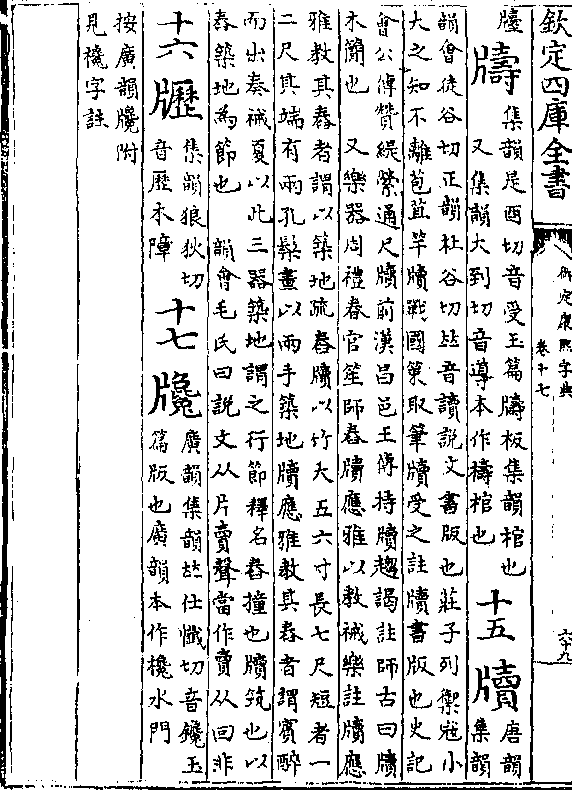 欽定四庫全書
御定康熙字典
卷十七
六十九
𤘀
集韻是酉切音受玉篇𤘀板集韻棺也
又集韻大到切音導本作檮棺也
十五
牘
唐韻
集韻
韻會徒谷切正韻杜谷切𠀤音讀說文書版也莊子列禦寇小
大之知不離苞苴竿牘戰國策取筆牘受之註牘書版也史記
會公傳贊緹縈通尺牘前漢昌邑王傳持牘趨謁註師古曰牘
木簡也 又樂器周禮春官笙師舂牘應雅以教祴樂註牘應
雅教其舂者謂以築地疏舂牘以竹大五六寸長七尺短者一
二尺其端有兩孔髤畫以兩手築地牘應雅教其舂者謂賓醉
而出奏祴夏以此三器築地謂之行節釋名舂撞也牘筑也以
舂築地為節也 韻會毛氏曰說文从片賣聲當作賣从囧非
十六
集韻狼狄切
音歷木障
十七
𤘎
廣韻集韻𠀤仕懺切音鑱玉
篇版也廣韻本作欃水門
按廣韻𤘎附
見欃字註